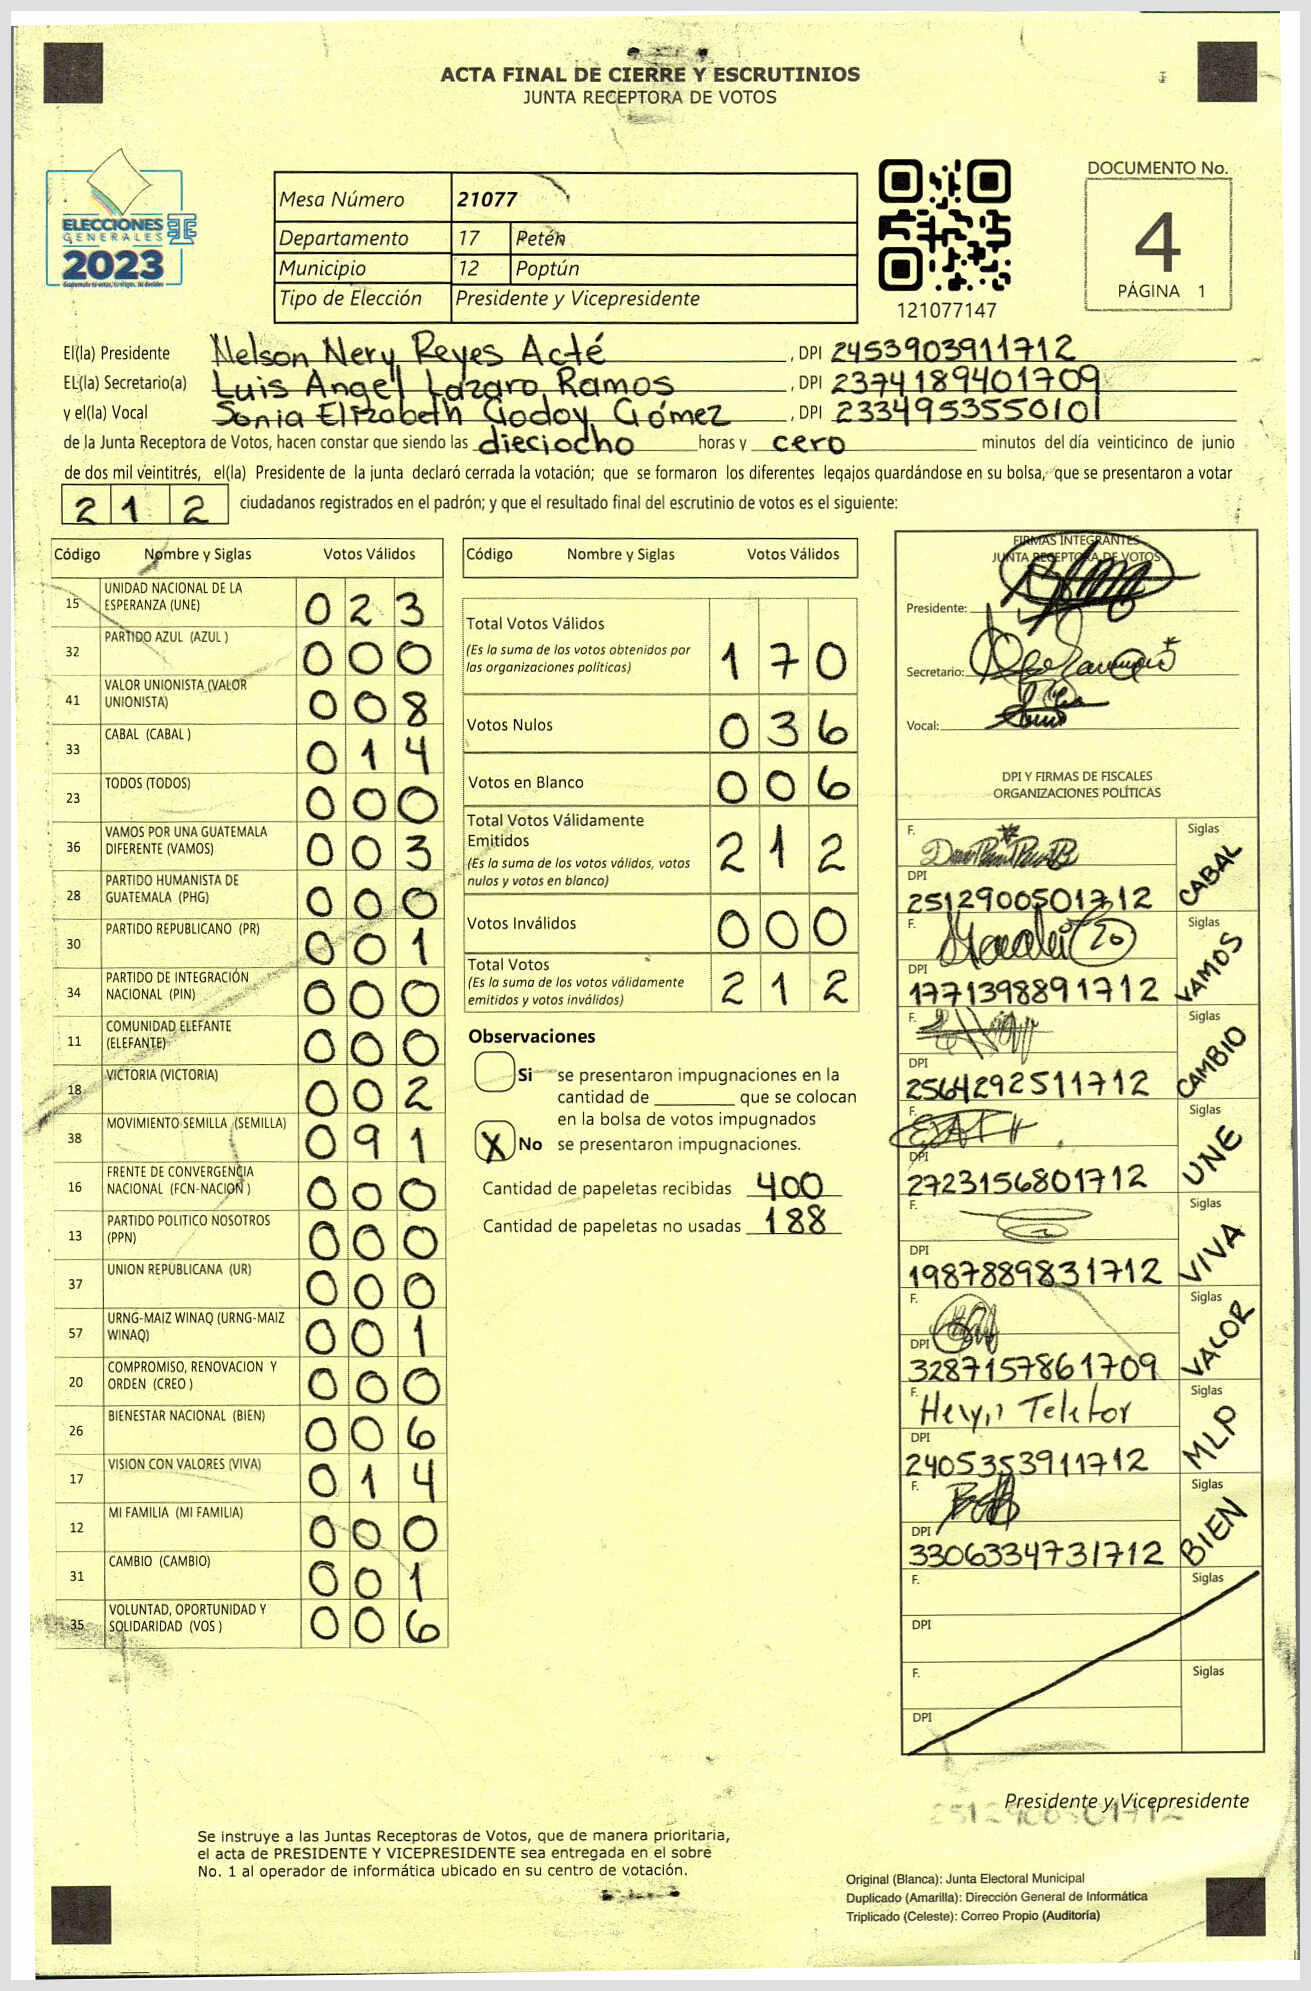 ACTA FINAL DE CIERRE Y ESCRUTINIOS
JUNTA RECEPTORA DE VOTOS
ELECCIONES
GENERALES
2023
Mesa Número 21077
Departamento 17 Petén
Municipio 12 Poptún
Tipo de Elección Presidente y Vicepresidente
121077147
DOCUMENTO No.
4
PÁGINA 1
El(la) Presidente Nelson Nery Reyes Acté , DPI 2453903911712
EL(la) Secretario(a) Luis Angel Lázaro Ramos , DPI 2374189401709
y el(la) Vocal Sonia Elizabeth Godoy Gómez , DPI 2334953550101
de la Junta Receptora de Votos, hacen constar que siendo las dieciocho horas y cero minutos del día veinticinco de junio
de dos mil veintitrés, el(la) Presidente de la junta declaró cerrada la votación; que se formaron los diferentes legajos guardándose en su bolsa, que se presentaron a votar
212 ciudadanos registrados en el padrón; y que el resultado final del escrutinio de votos es el siguiente:
Código Nombre y Siglas Votos Válidos
15 UNIDAD NACIONAL DE LA ESPERANZA (UNE) 023
32 PARTIDO AZUL (AZUL ) 000
41 VALOR UNIONISTA (VALOR UNIONISTA) 008
33 CABAL (CABAL ) 014
23 TODOS (TODOS) 000
36 VAMOS POR UNA GUATEMALA DIFERENTE (VAMOS) 003
28 PARTIDO HUMANISTA DE GUATEMALA (PHG) 000
30 PARTIDO REPUBLICANO (PR) 001
34 PARTIDO DE INTEGRACIÓN NACIONAL (PIN) 000
11 COMUNIDAD ELEFANTE (ELEFANTE) 000
18 VICTORIA (VICTORIA) 002
38 MOVIMIENTO SEMILLA (SEMILLA) 091
16 FRENTE DE CONVERGENCIA NACIONAL (FCN-NACION ) 000
13 PARTIDO POLITICO NOSOTROS (PPN) 000
37 UNION REPUBLICANA (UR) 000
57 URNG-MAIZ WINAQ (URNG-MAIZ WINAQ) 001
20 COMPROMISO, RENOVACION Y ORDEN (CREO ) 000
26 BIENESTAR NACIONAL (BIEN) 006
17 VISION CON VALORES (VIVA) 014
12 MI FAMILIA (MI FAMILIA) 000
31 CAMBIO (CAMBIO) 001
35 VOLUNTAD, OPORTUNIDAD Y SOLIDARIDAD (VOS ) 006
Código Nombre y Siglas Votos Válidos
Total Votos Válidos 170
(Es la suma de los votos obtenidos por
las organizaciones políticas)
Votos Nulos 036
Votos en Blanco 006
Total Votos Válidamente
Emitidos 212
(Es la suma de los votos válidos, votos
nulos y votos en blanco)
Votos Inválidos 000
Total Votos 212
(Es la suma de los votos válidamente
emitidos y votos inválidos)
Observaciones
Si se presentaron impugnaciones en la
cantidad de ________ que se colocan
en la bolsa de votos impugnados
X No se presentaron impugnaciones.
Cantidad de papeletas recibidas 400
Cantidad de papeletas no usadas 188
FIRMAS INTEGRANTES
JUNTA RECEPTORA DE VOTOS
Presidente:
Secretario:
Vocal:
DPI Y FIRMAS DE FISCALES
ORGANIZACIONES POLÍTICAS
F. Siglas CABAL
DPI 2512900501712
F. Siglas VAMOS
DPI 1771398891712
F. Siglas CAMBIO
DPI 2564292511712
F. Siglas UNE
DPI 2723156801712
F. Siglas VIVA
DPI 1987889831712
F. Siglas VALOR
DPI 3287157861709
F. Siglas MLP
DPI 2405353911712
F. Siglas BIEN
DPI 3306334731712
F. Siglas
DPI
F. Siglas
DPI
Presidente y Vicepresidente
2512900501712
Se instruye a las Juntas Receptoras de Votos, que de manera prioritaria,
el acta de PRESIDENTE Y VICEPRESIDENTE sea entregada en el sobre
No. 1 al operador de informática ubicado en su centro de votación.
Original (Blanca): Junta Electoral Municipal
Duplicado (Amarilla): Dirección General de Informática
Triplicado (Celeste): Correo Propio (Auditoría)